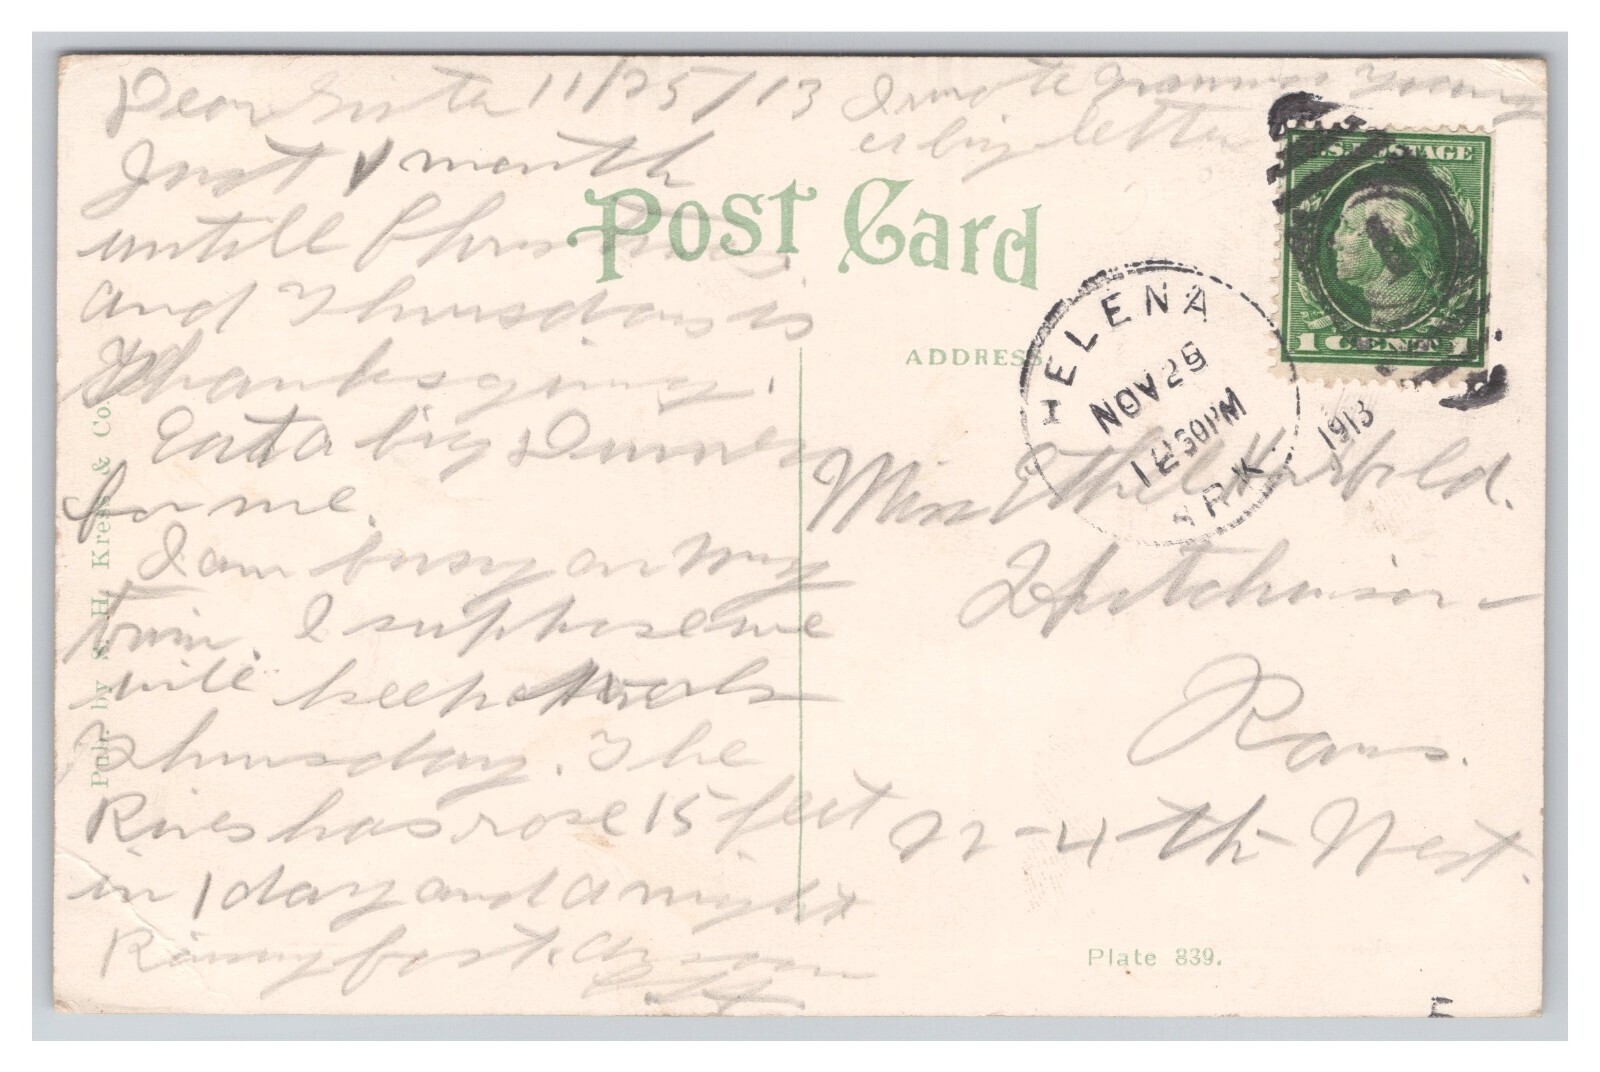 Dear Sister 11/25/13
Just 1 month
untill Christmas
and Thursday is
Thanksgiving.
Eat a big Dinner
for me.
I am busy on my
train. I suppose we
will keep at work
Thursday. The
River has rose 15 feet
in 1 day and a night
Rising fast. Ans soon
I wrote Gramma Young
a big letter
POST CARD
ADDRESS
U.S. POSTAGE
1 CENT 1
HELENA
NOV 26
12 30 PM
ARK.
1913
Miss Ethel
Hutchinson
Kans.
4th West.
Pub. by S. H. Kress & Co.
Plate 839.